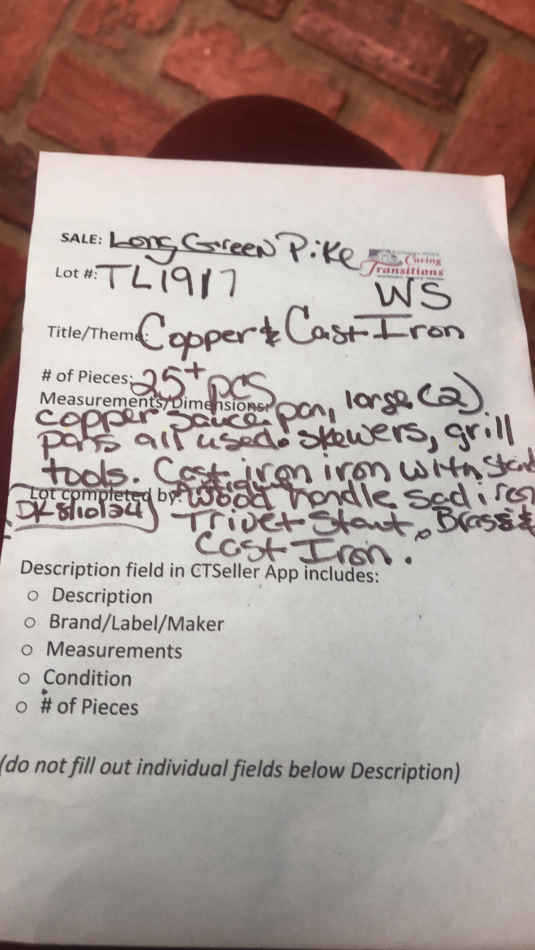 SALE: Long Green Pike
Caring
Transitions
Lot #: TL1917
WS
Title/Theme: Copper & Cast Iron
# of Pieces: 25+ pcs
Measurements/Dimensions: large (2)
copper sauce pan,
pans all used. Skewers, grill
tools. Cast iron iron with stand
Lot completed by: wood handle sad iron
DK 8/10/24 Trivet Stant, Brass &
Cast Iron.
Description field in CTSeller App includes:
○ Description
○ Brand/Label/Maker
○ Measurements
○ Condition
○ # of Pieces
(do not fill out individual fields below Description)